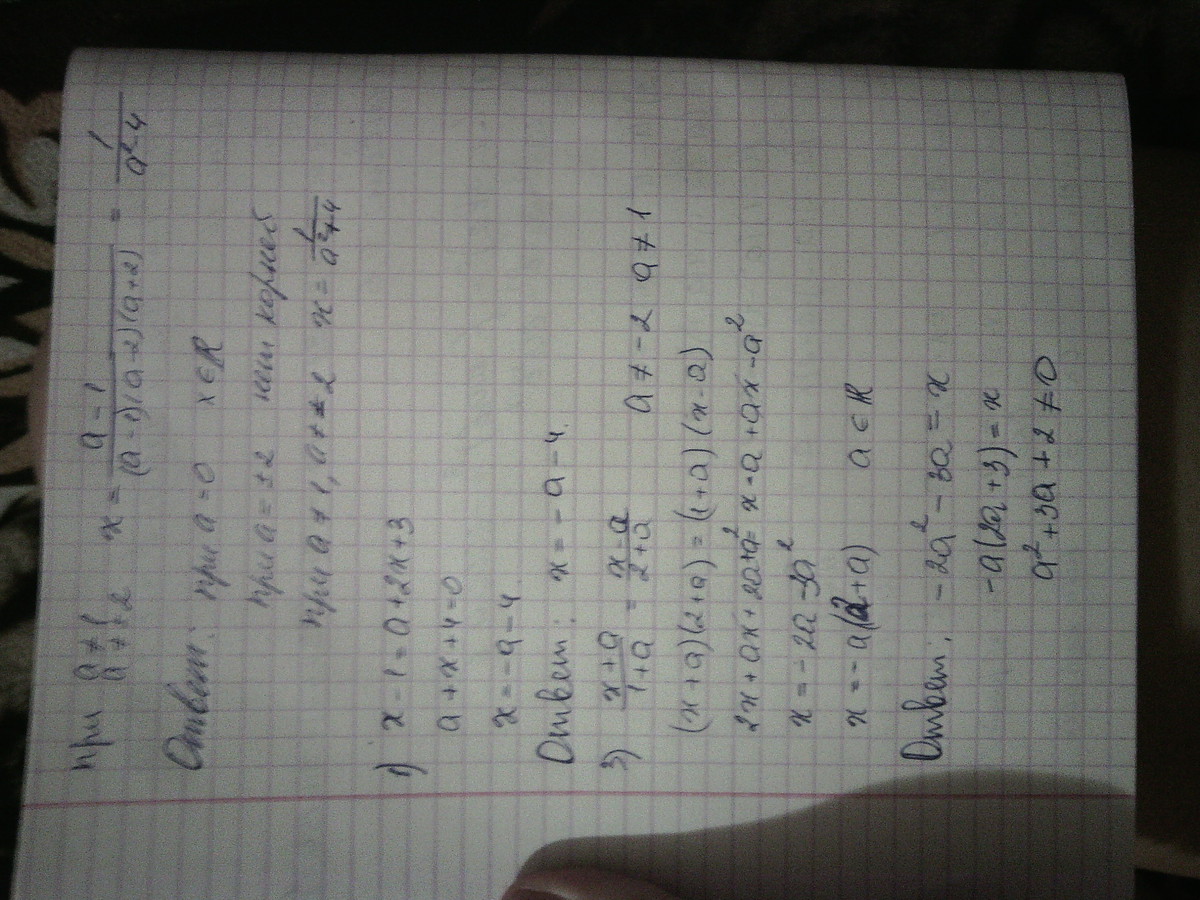 при a ≠ 1 a ≠ ± 2 x = \frac{a - 1}{(a - 1)(a - 2)(a + 2)} = \frac{1}{a² - 4}
Ответ: при a = 0 x ∈ ℝ
при a = ± 2 нет корней
при a ≠ 1, a ≠ ± 2 x = \frac{1}{a² + 4}
1) x - 1 = a + 2x + 3
a + x + 4 = 0
x = - a - 4
Ответ: x = - a - 4.
3) \frac{x + a}{1 + a} = \frac{x - a}{2 + a} a ≠ - 2 a ≠ 1
(x + a)(2 + a) = (1 + a)(x - a)
2x + ax + 2a + a² = x - a + ax - a²
x = - 2a - 3a²
x = - a(2 + a) a ∈ ℝ
Ответ: - 2a² - 3a = x
- a(2a + 3) = x
a² + 3a + 2 ≠ 0